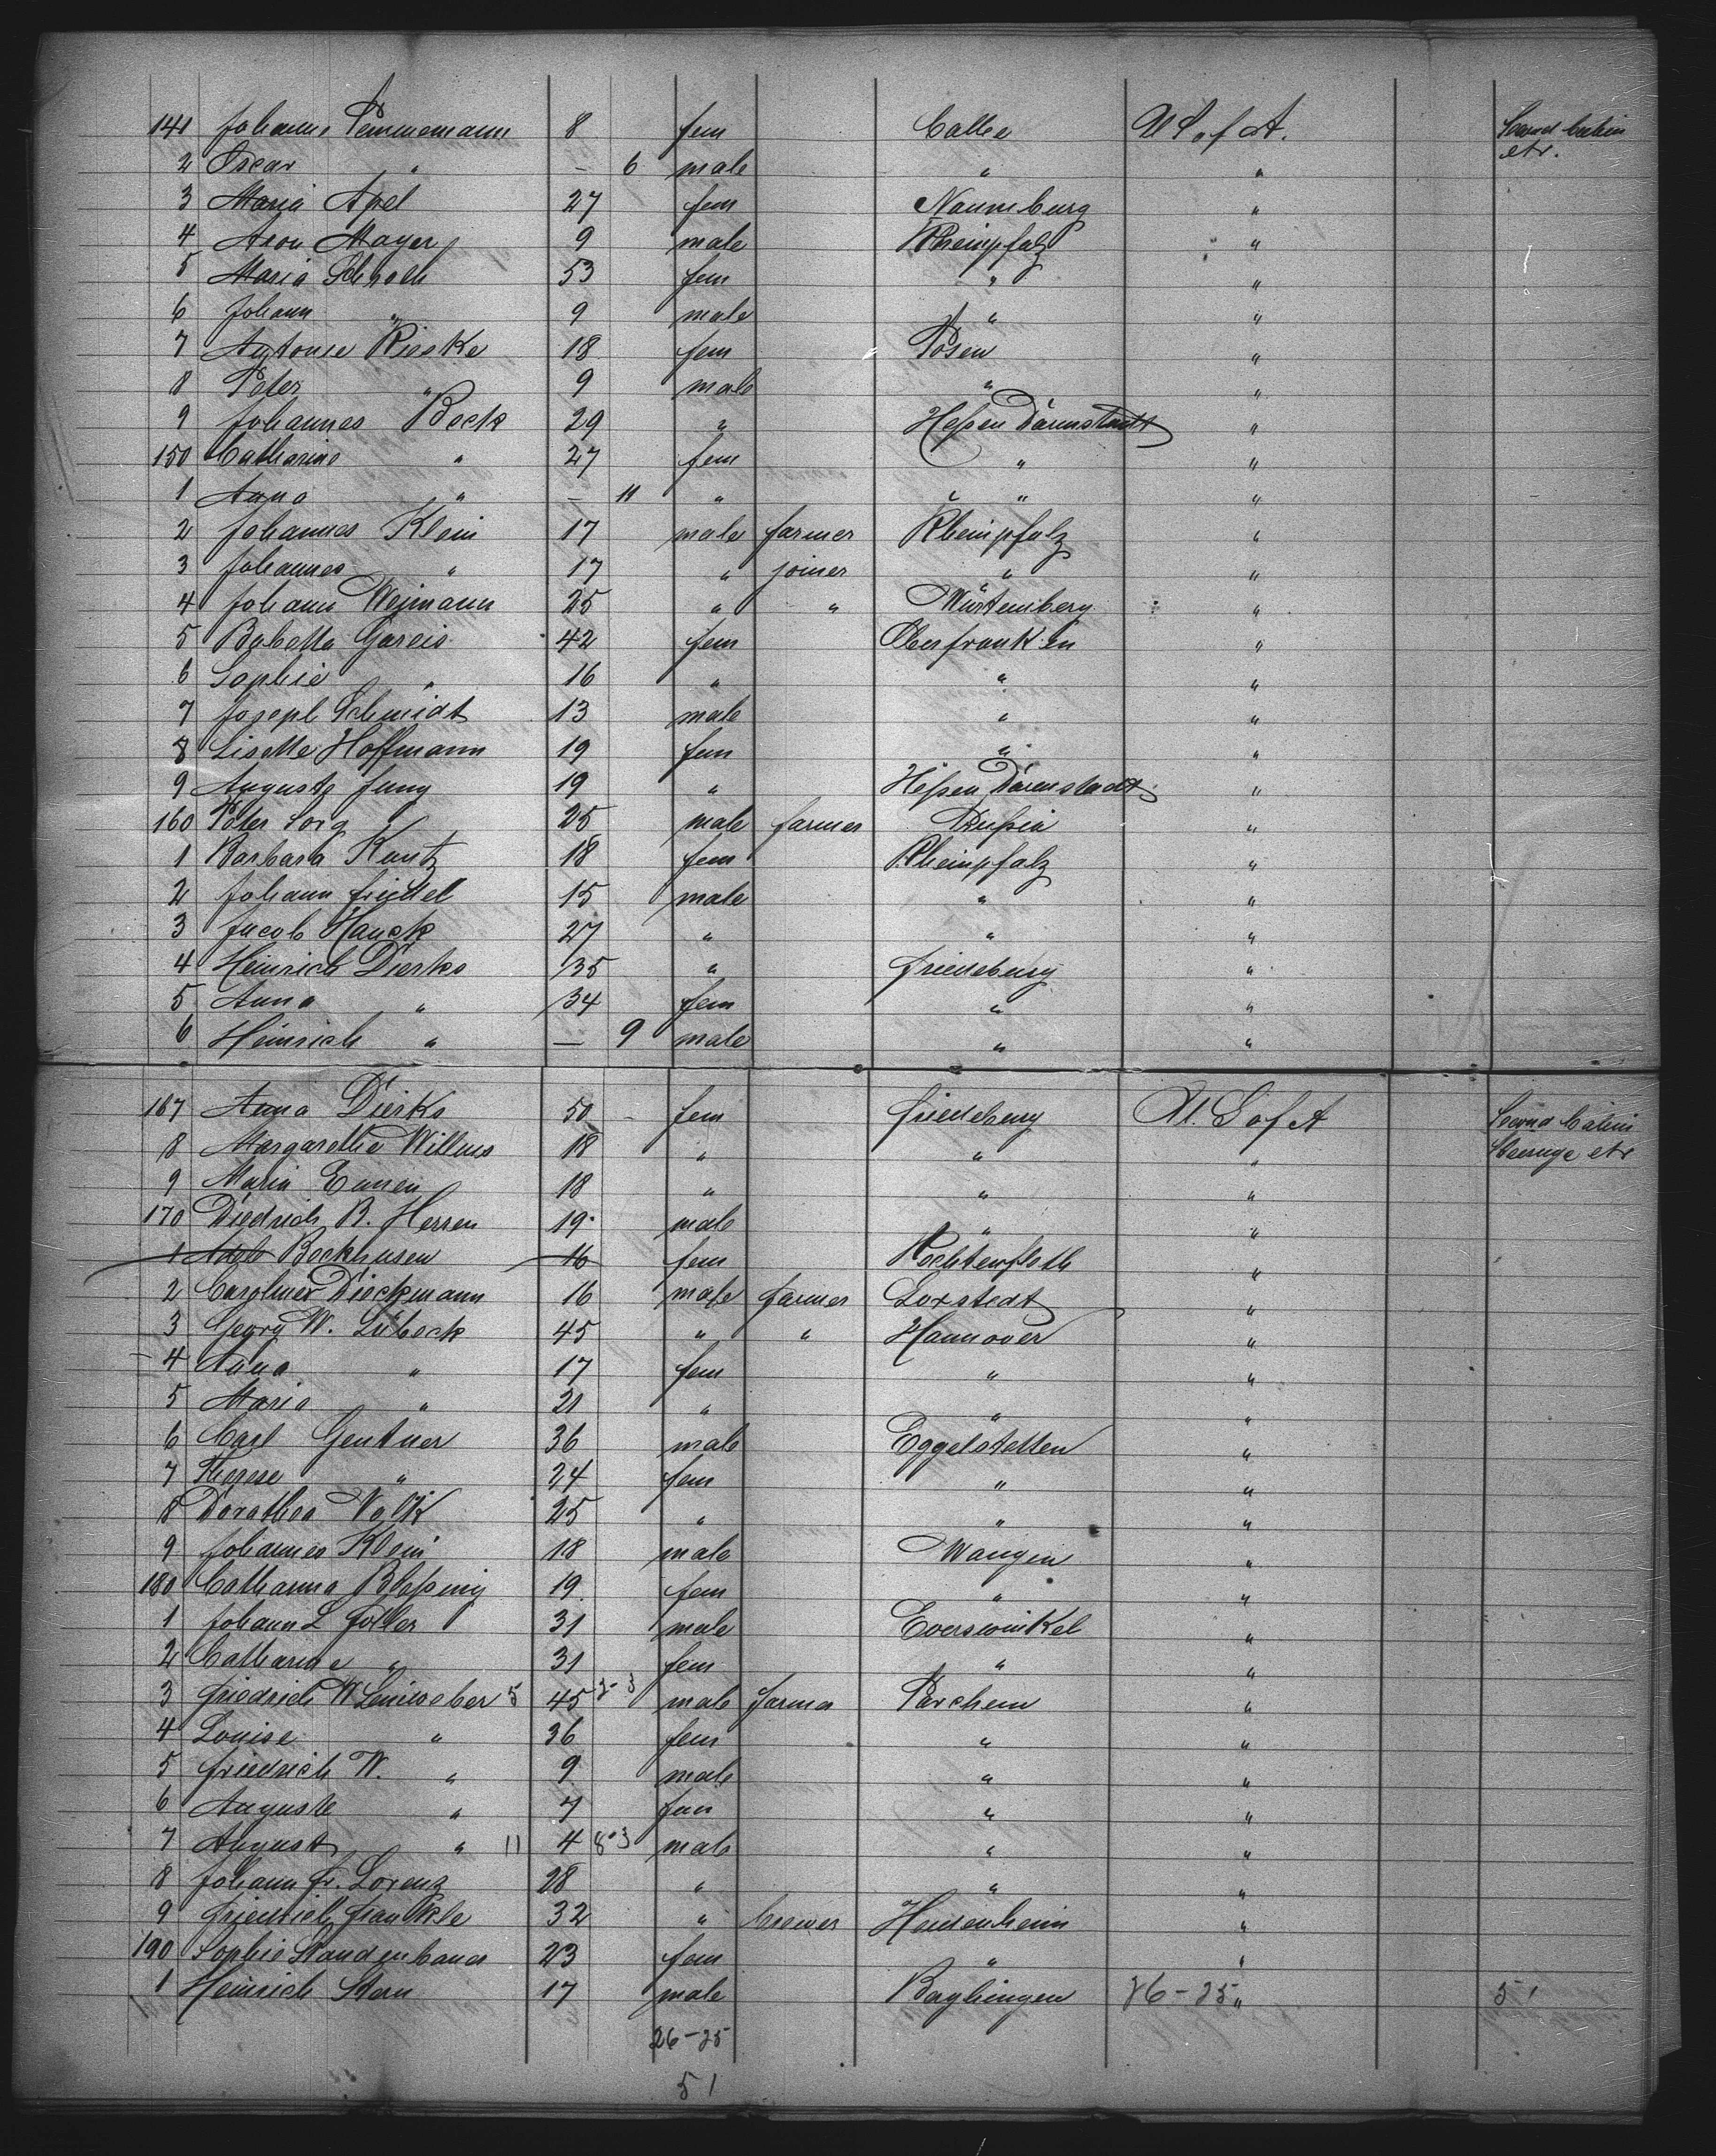 141 Johanne Temmemann 8 fem Calbe U S of A. Second Cabin
2 Oscar " — 6 male " " etr.
3 Maria Apel 27 fem Naumburg "
4 Aron Mayer 9 male Rheinpfalz "
5 Maria Schroth 53 fem " "
6 Johann " 9 male " "
7 Antonie Rieske 18 fem Posen "
8 Peter " 9 male " "
9 Johannes Beck 29 " Heßen Darmstadt "
150 Catharine " 27 fem " "
1 Anna " — 11 " " "
2 Johannes Klein 17 male farmer Rheinpfalz "
3 Johannes " 17 " joiner " "
4 Johann Weimann 25 " " Würtemberg "
5 Babetta Gareis 42 fem Oberfranken "
6 Sophie " 16 " " "
7 Joseph Schmidt 13 male " "
8 Lisette Hoffmann 19 fem " "
9 Auguste Jung 19 " Heßen Darmstadt "
160 Peter Sorg 25 male farmer Rußia "
1 Barbara Kuntz 18 fem Rheinpfalz "
2 Johann Friedel 15 male " "
3 Jacob Hauck 27 " " "
4 Heinrich Dierks 35 " Friedeburg "
5 Anna " 34 fem " "
6 Heinrich " — 9 male " "
167 Anna Dierks 50 fem Friedeburg U. S of A Second Cabin
8 Margarethe Willms 18 " " " Steerage etr
9 Maria Ennen 18 " " "
170 Diedrich B. Herren 19 male " "
1 Adele Bockhusen 16 fem Rechtenfleth "
2 Carsten Dieckmann 16 male farmer Loxstedt "
3 Georg W. Lübeck 45 " " Hannover "
4 Anna " 17 fem " "
5 Maria " 21 " " "
6 Carl Gentner 36 male Eggelstetten "
7 Therese " 24 fem " "
8 Dorothea Volk 25 " " "
9 Johannes Klein 18 male Wangen "
180 Catharina Bleßing 19 fem " "
1 Johann L Foller 31 male Everswinkel "
2 Catharine " 31 fem " "
3 Friedrich W Leinweber 5 45 3-3 male farmer Parchem "
4 Louise " 36 fem " "
5 Friedrich W. " 9 male " "
6 Auguste " 7 fem " "
7 August " 11 4 8-3 male " "
8 Johann Fr. Lorenz 28 " " "
9 Friedrich Frankle 32 " brewer Heidenheim "
190 Sophie Staudenbauer 23 fem " "
1 Heinrich Stern 17 male Baglingen 26-25 " 51
26-25
51